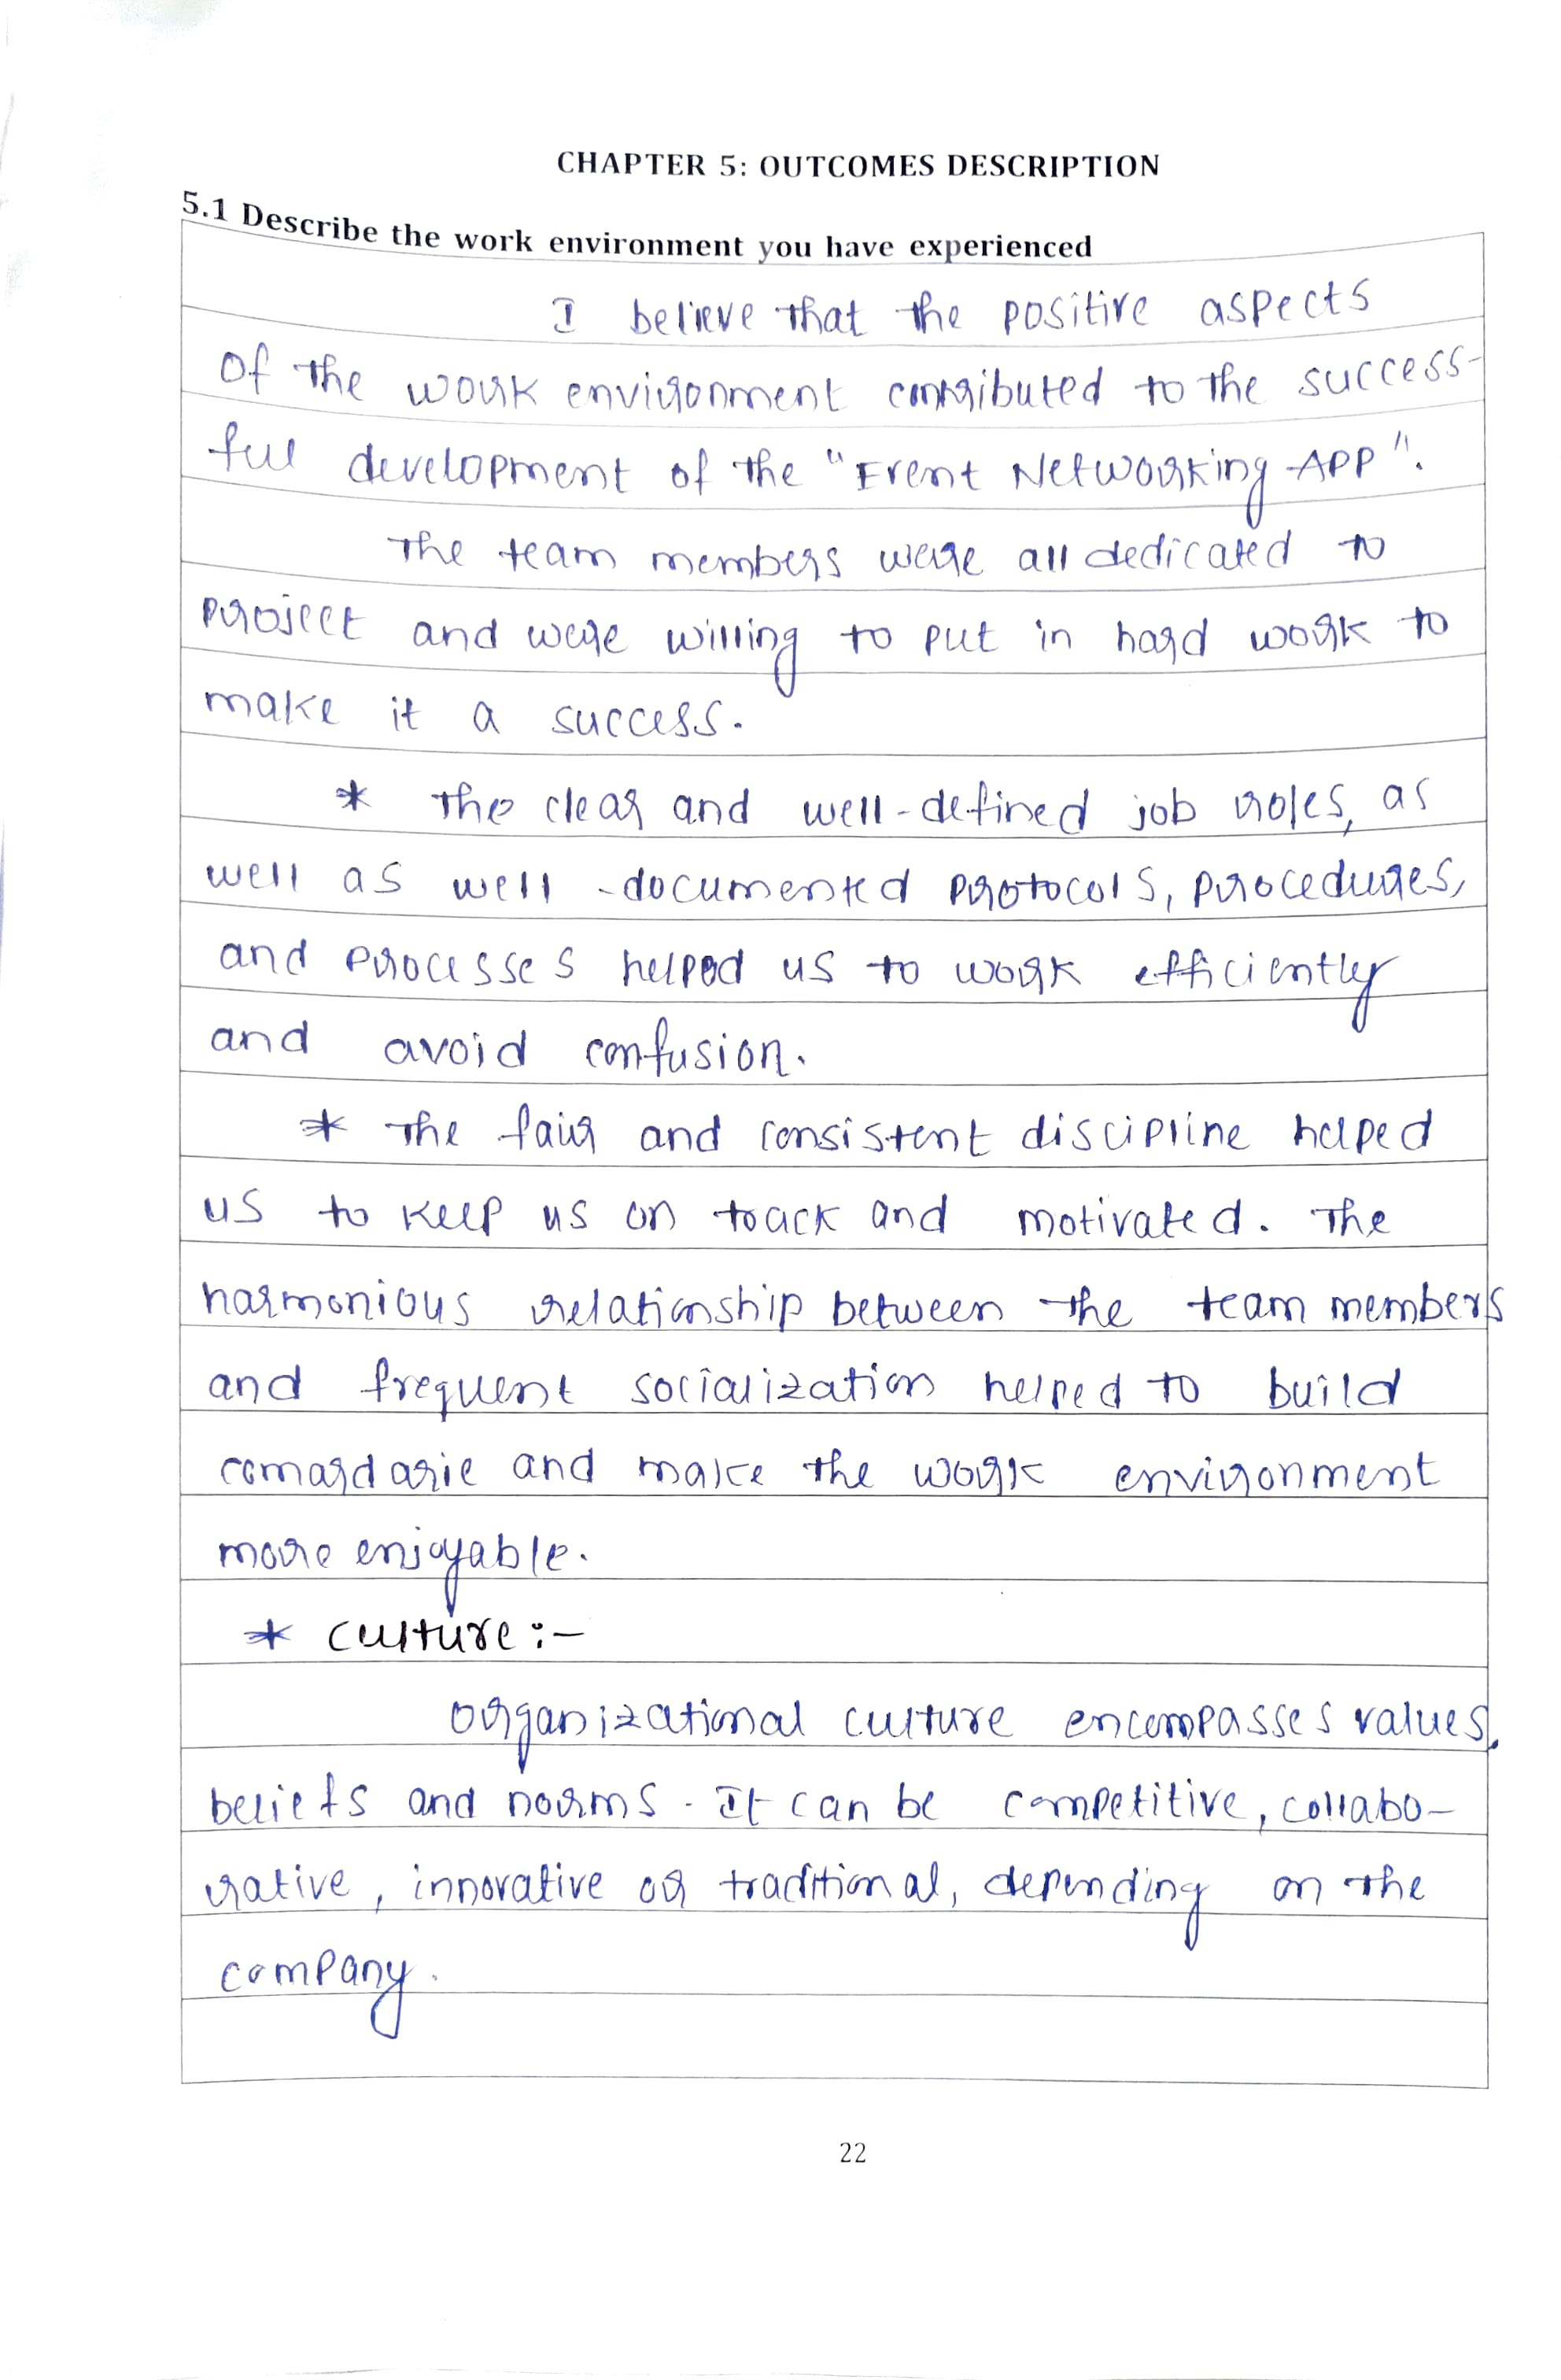 CHAPTER 5: OUTCOMES DESCRIPTION
5.1 Describe the work environment you have experienced
I believe that the positive aspects
of the work environment contributed to the success-
ful development of the "Event Networking App".
The team members were all dedicated to
project and were willing to put in hard work to
make it a success.
* The clear and well-defined job roles, as
well as well-documented protocols, procedures,
and processes helped us to work efficiently
and avoid confusion.
* The fair and consistent discipline helped
us to keep us on track and motivated. The
harmonious relationship between the team members
and frequent socialization helped to build
comardarie and make the work environment
more enjoyable.
* Culture :-
Organizational culture encompasses values,
beliefs and norms. It can be competitive, collabo-
rative, innovative or traditional, depending on the
company.
22